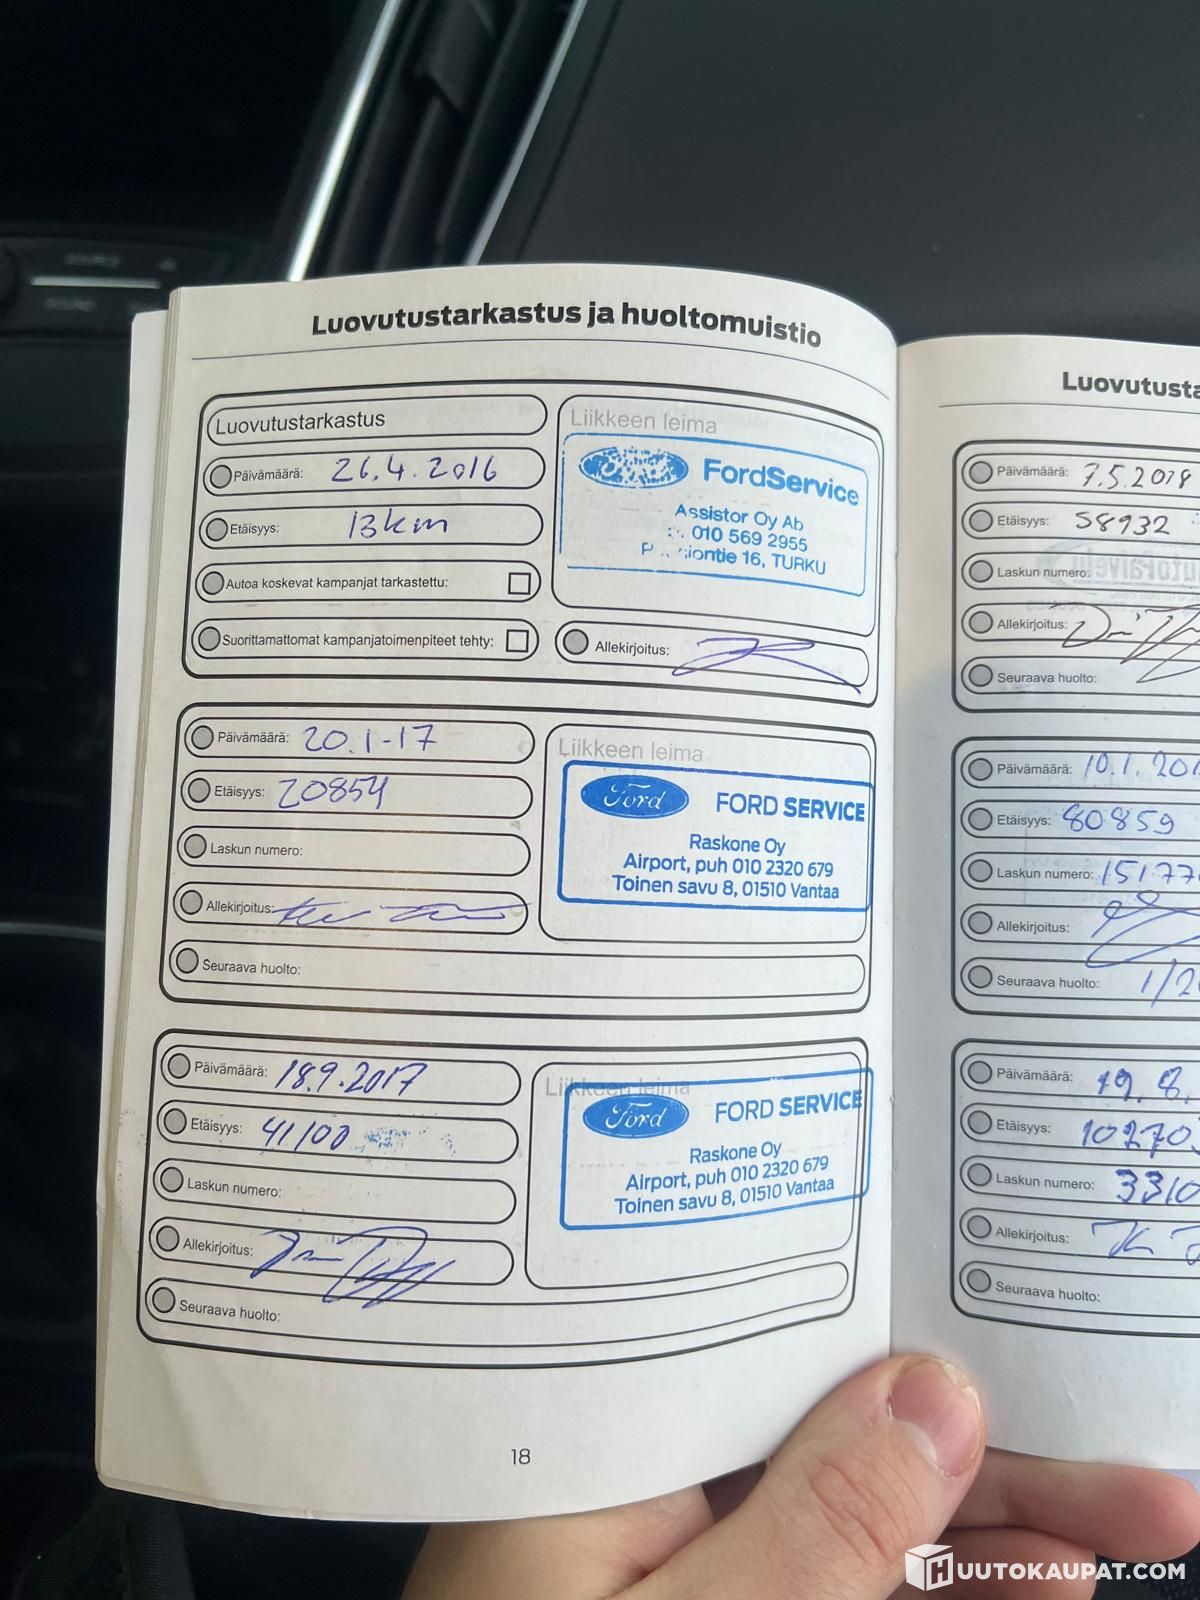 Luovutustarkastus ja huoltomuistio
Luovutustarkastus
Päivämäärä: 26.4.2016
Etäisyys: 13km
Autoa koskevat kampanjat tarkastettu:
Suorittamattomat kampanjatoimenpiteet tehty:
Liikkeen leima
FordService
Assistor Oy Ab
010 569 2955
16, TURKU
Allekirjoitus:
Päivämäärä: 20.1-17
Etäisyys: 20854
Laskun numero:
Allekirjoitus:
Seuraava huolto:
Liikkeen leima
Ford FORD SERVICE
Raskone Oy
Airport, puh 010 2320 679
Toinen savu 8, 01510 Vantaa
Päivämäärä: 18.9.2017
Etäisyys: 41100
Laskun numero:
Allekirjoitus:
Seuraava huolto:
Liikkeen leima
Ford FORD SERVICE
Raskone Oy
Airport, puh 010 2320 679
Toinen savu 8, 01510 Vantaa
18
Luovutusta
Päivämäärä: 7.5.2018
Etäisyys: 58932
Laskun numero:
Allekirjoitus:
Seuraava huolto:
Päivämäärä: 10.1.201
Etäisyys: 80859
Laskun numero: 15177
Allekirjoitus:
Seuraava huolto: 1/2
Päivämäärä: 19.8.
Etäisyys: 10270
Laskun numero: 3310
Allekirjoitus:
Seuraava huolto:
HUUTOKAUPAT.COM